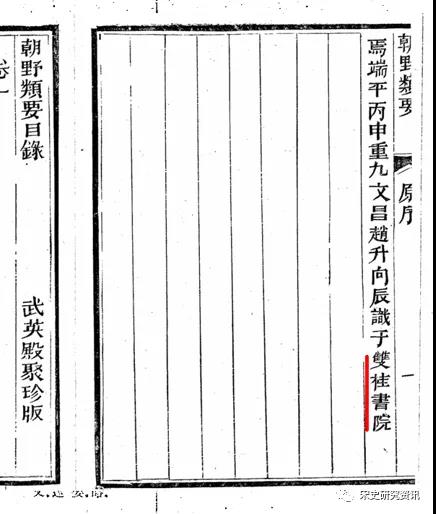 朝野類要
原序
一
焉端平丙申重九文昌趙升向辰識于雙桂書院
朝野類要目錄
武英殿聚珍版
卷一
宋史研究资讯